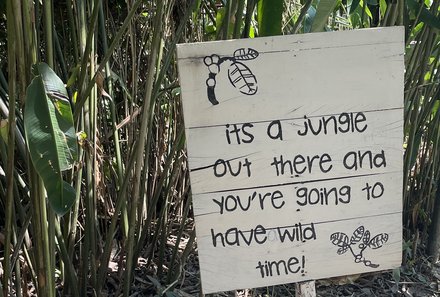 its a jungle
out there and
you're going to
have wild
time!